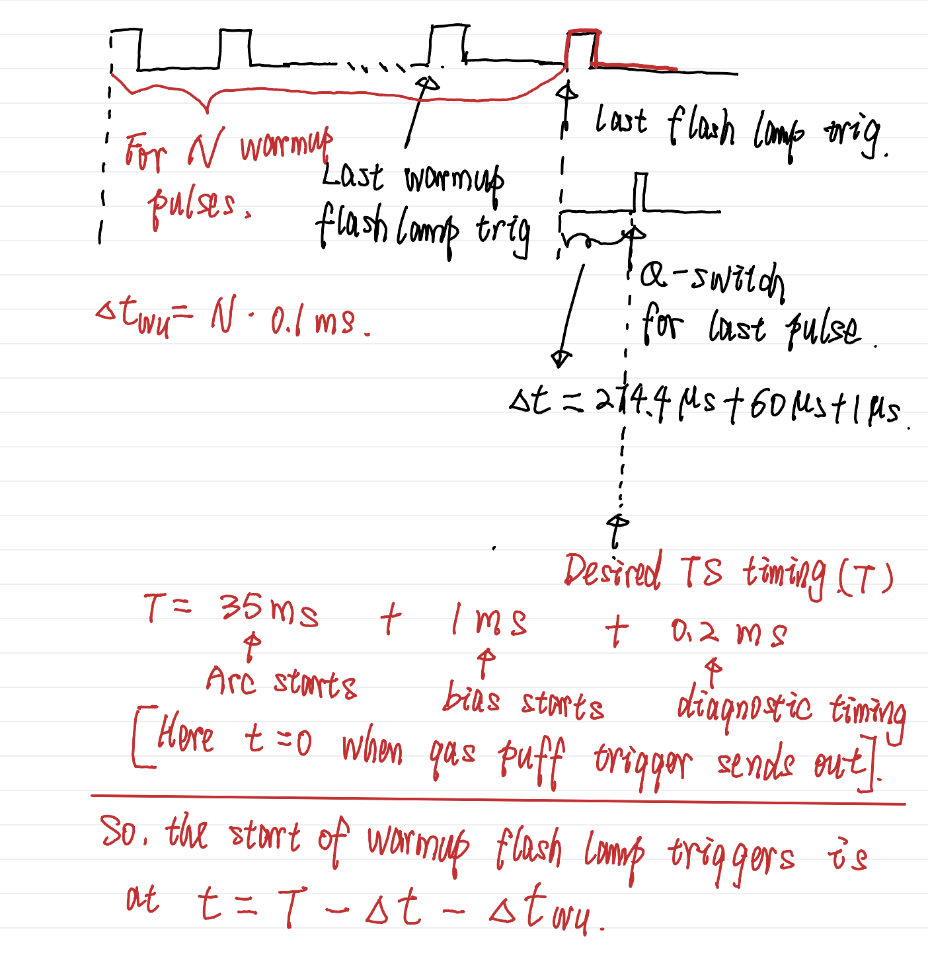 Last flash lamp trig.
For N warmup
pulses.
Last warmup
flash lamp trig
Q-switch
for last pulse.
Δt_wu = N · 0.1 ms.
Δt = 214.4 μs + 60 μs + 1 μs.
Desired TS timing (T)
T = 35 ms + 1 ms + 0.2 ms
Arc starts bias starts diagnostic timing
[Here t=0 when gas puff trigger sends out].
So, the start of warmup flash lamp triggers is
at t = T - Δt - Δt_wu.